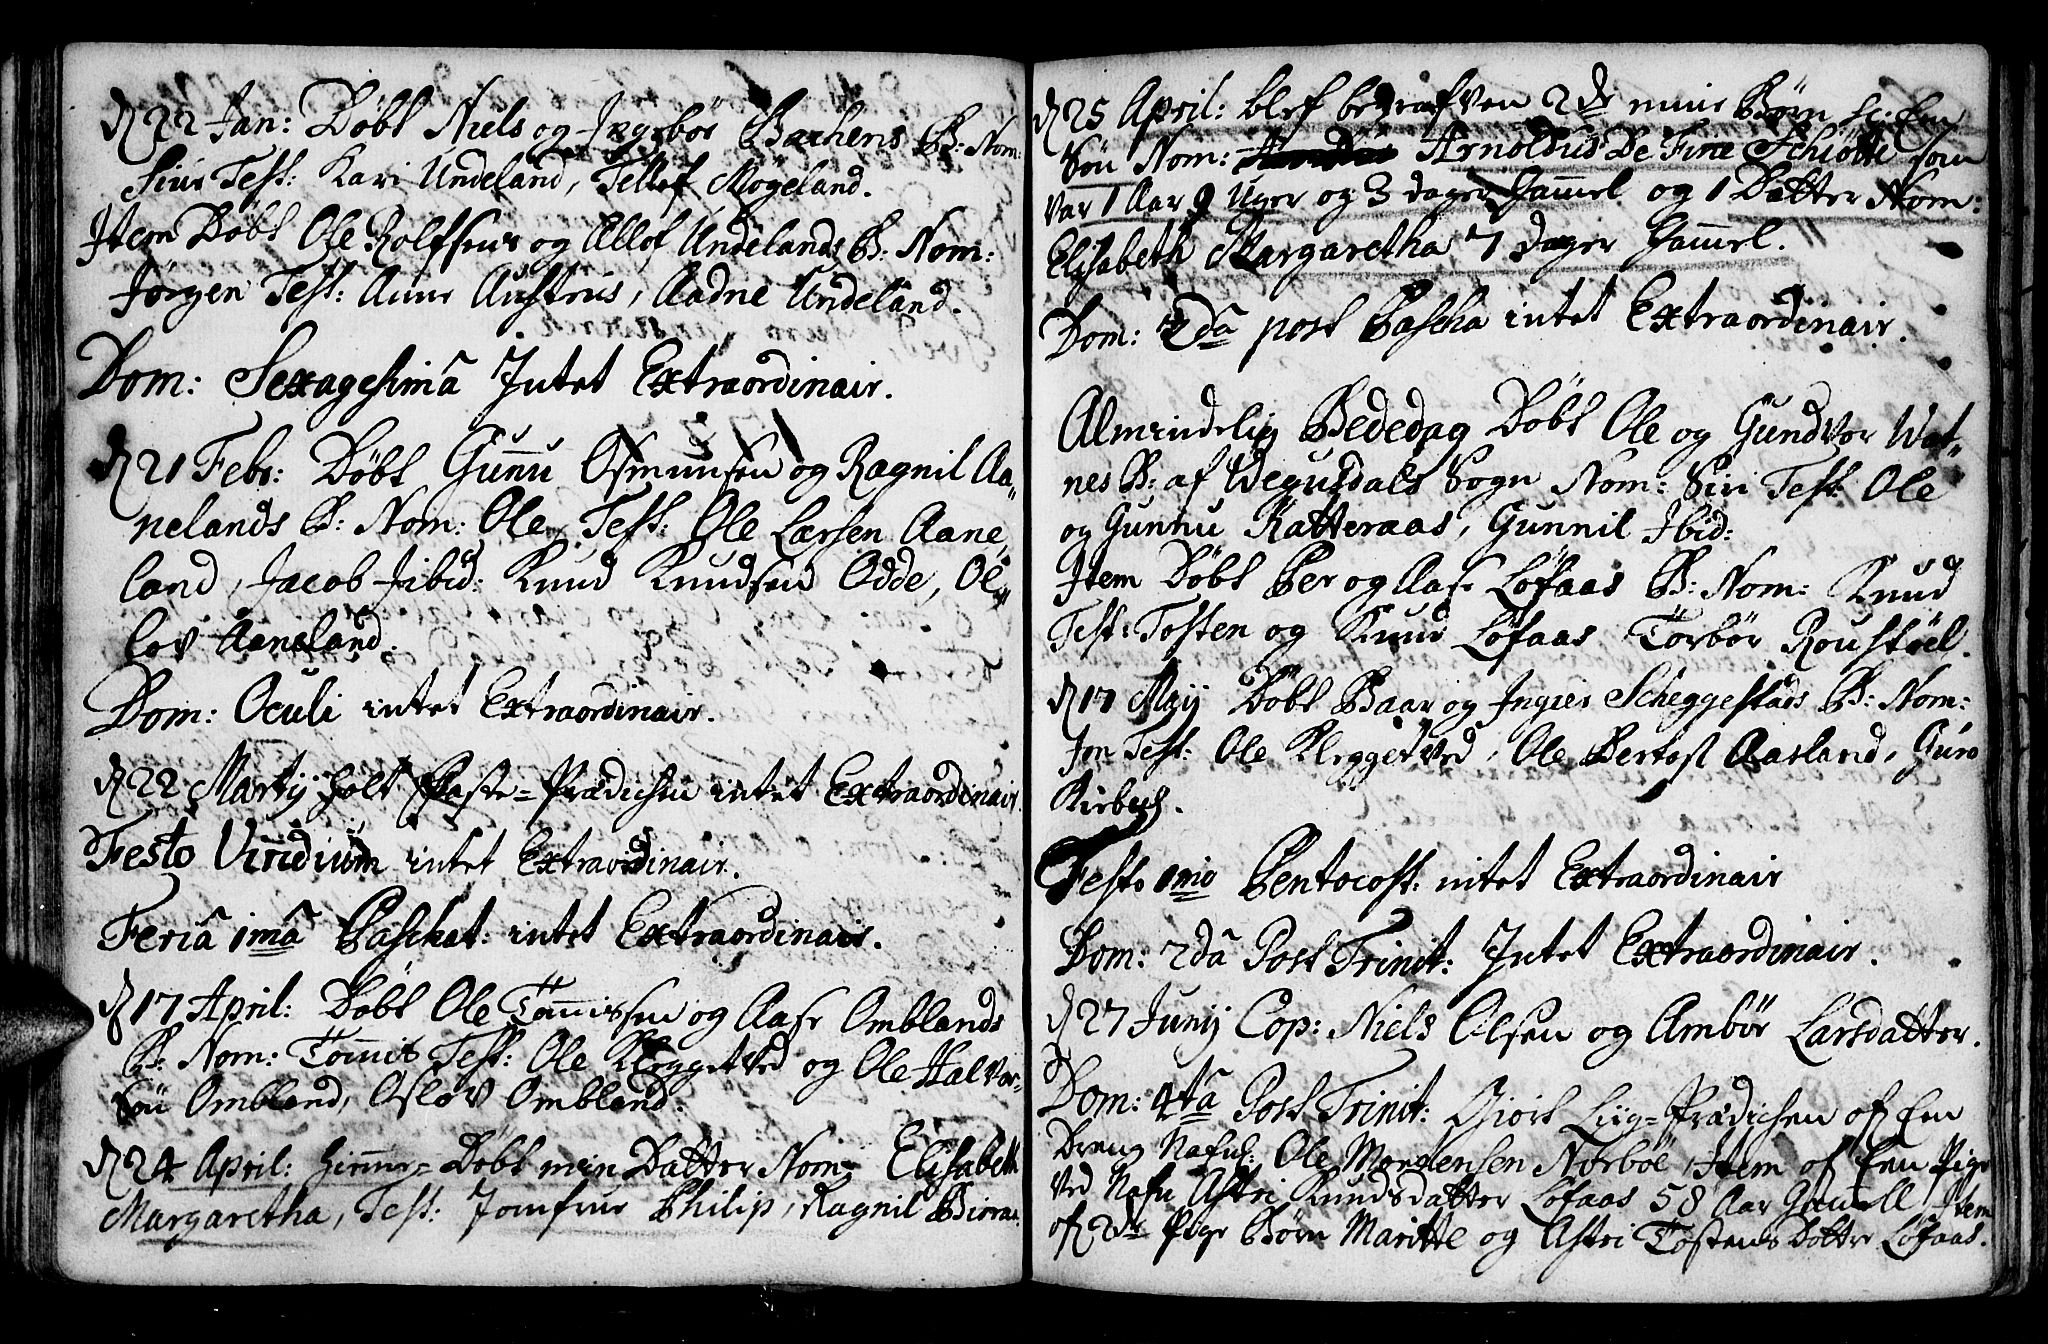 d 22 Jan: Døbt Niels og Ingebør Bachens B: Nom:
Siur Test: Kari Undeland, Tellef Møgeland.
Item Døbt Ole Rolfsens og Allof Undelands B: Nom:
Jørgen Test: Anne Austrus, Aadne Undeland.
Dom: Sexagesimâ Intet Extraordinair.
d 21 Febr: Døbt Gunnu Osmunsen og Ragnil Aa„
nelands B: Nom: Ole, Test: Ole Larsen Aane„
land, Jacob Jibid: Knud Knudsen Odde, Ol„
lov Aaneland.
Dom: Oculi intet Extraordinair.
d 22 Martij holt Faste=Prædichen intet Extraordinair.
Festo Viridium intet Extraordinair.
Feriâ 1mâ Paschat: intet Extraordinair.
d 17 April: Døbt Ole Tønnissen og Aase Omblands
B: Nom: Tønnis Test: Ole Kleggetved og Ole Halvor„
søn Ombland, Osløv Ombland.
d 24 April: Hieme=Døbt min Datter Nom: Elisabeth
Margaretha, Test: Jomfrue Philip, Ragnil
d 25 April: blef begrafven 2de mine Børn sc: Een
Søn Nom: Arnoldus De Fine Schiøtte som
var 1 Aar 9 Uger og 3 dager Gammel og 1 Datter Nom:
Elisabeth Margaretha 7 Dager Gammel.
Dom: 2dâ post Pascha intet Extraordinair.
Almindelig Bededag Døbt Ole og Gundvor Wat„
nes B: af Wegusdals Sogn Nom: Siri Test: Ole
og Gunnu Ratteraas, Gunnil Ibid:
Item Døbt Per og Aase Løfaas B: Nom: Knud
Test: Tosten og Knud Løfaas Torbør Roustøel.
d 17 Maij Døbt Baar og Ingier Scheggestads B: Nom:
Jon Test: Ole Kleggetved, Ole Bertos Aasland, Guro
Kirbus.
Festo 1mo Pentocost: intet Extraordinair
Dom: 2dâ Post Trinit: Intet Extraordinair.
d 27 Junij Cop: Niels Olsen og Ambør Larsdatter.
Dom: 4tâ Post Trinit: Giort Liig=Prædichen of Een
Dreng Nafnl: Ole Mortensen Nørbøe, Item of Een Pige
ved Nafn Astri Knudsdatter Løfaas 58 Aar Gamell Item
of 2de Pige Børn Maritte og Astri Tostens Døtter Løfaas.